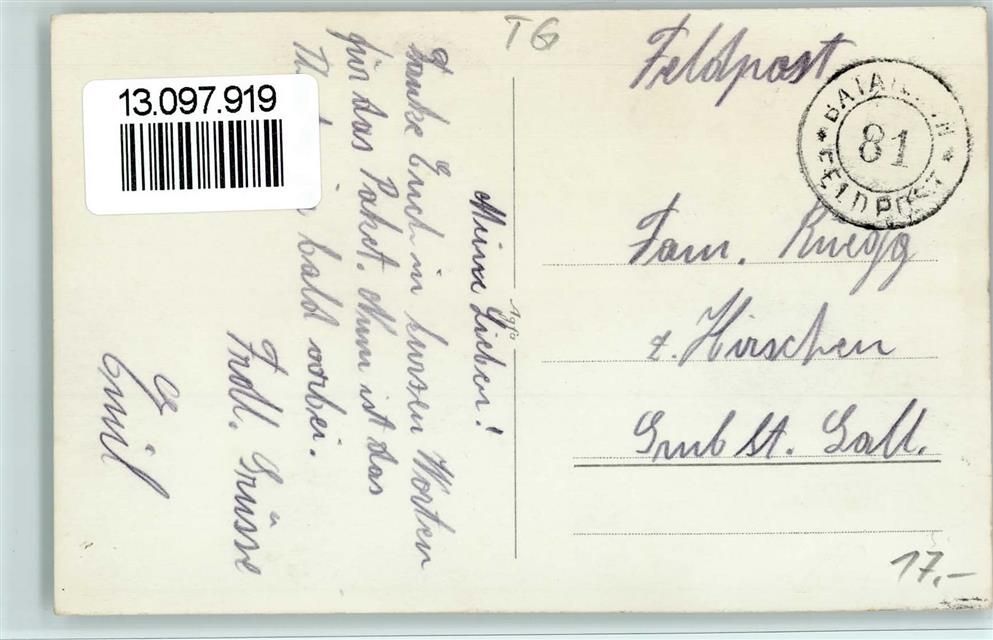 13.097.919
TG
Feldpost
BATAILLON
81
FELDPOST
Fam. Ruegg
z. Hirschen
Grub St. Gall.
17.-
Agfa
Meine Lieben!
Danke Euch in kurzen Worten
für das Paket. Nun ist das
bald vorbei.
Frdl. Grüsse
Emil